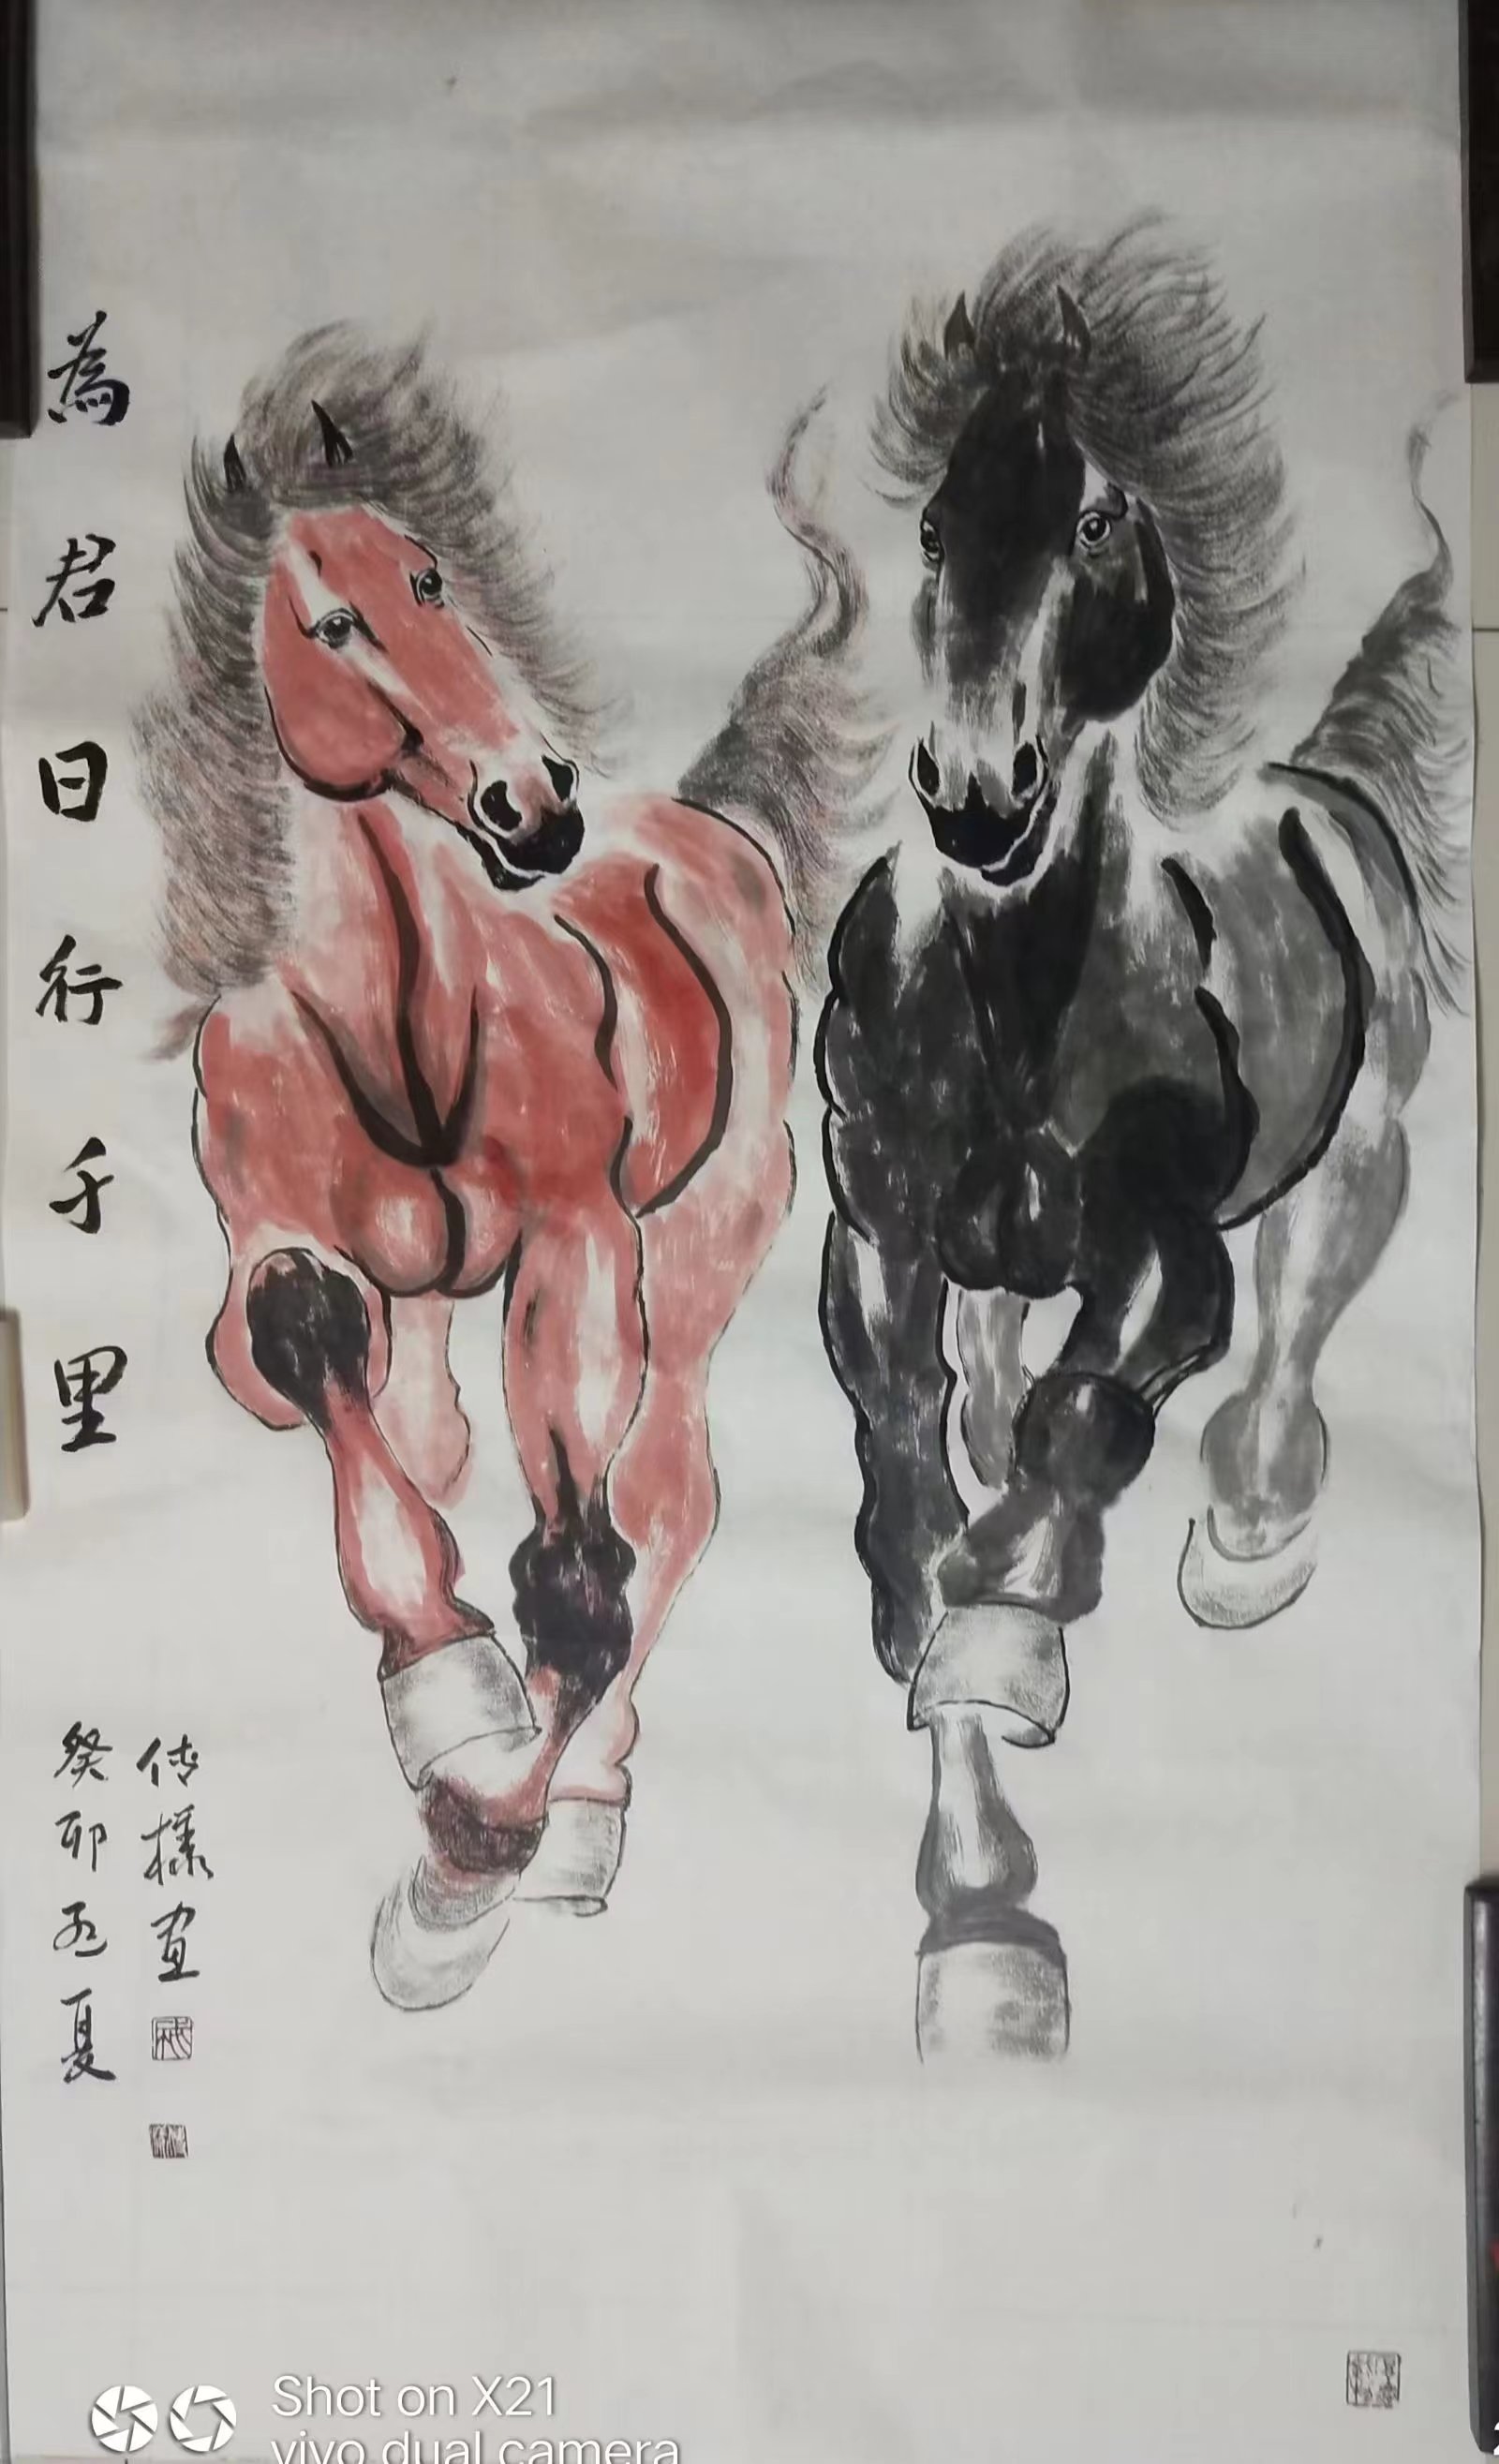 為君日行千里
癸卯孟夏
传樣画
Shot on X21
vivo dual camera